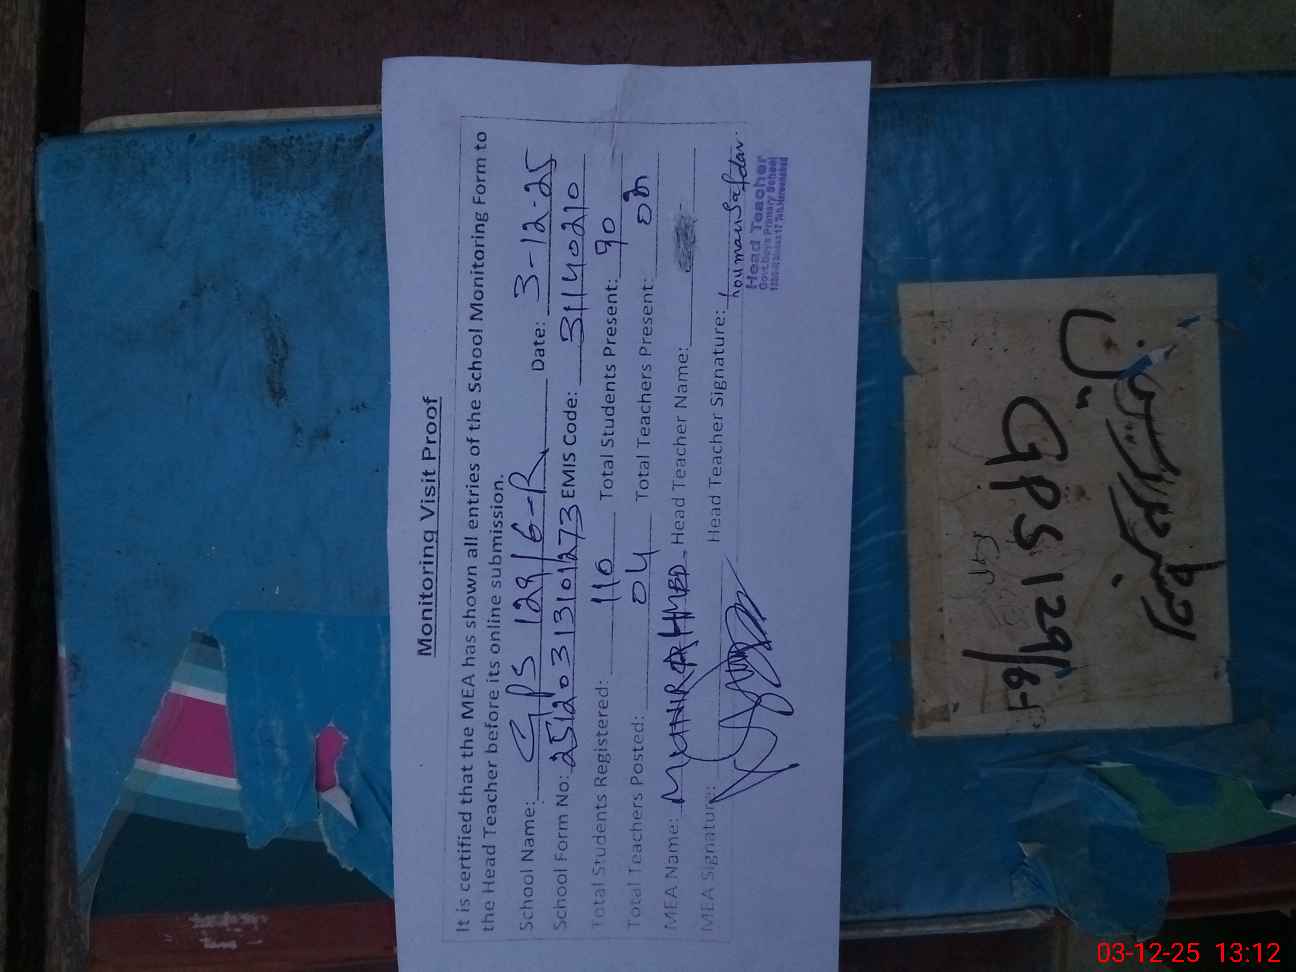 Monitoring Visit Proof
It is certified that the MEA has shown all entries of the School Monitoring Form to
the Head Teacher before its online submission.
School Name: GPS 129/6-R Date: 3-12-25
School Form No: 25120313101273 EMIS Code: 31140210
Total Students Registered: 110 Total Students Present: 90
Total Teachers Posted: 04 Total Teachers Present:
MEA Name: MUNIR AHMED Head Teacher Name:
MEA Signature: Head Teacher Signature:
Head Teacher
Govt. Boys Primary School
GPS 129/6-R
03-12-25 13:12